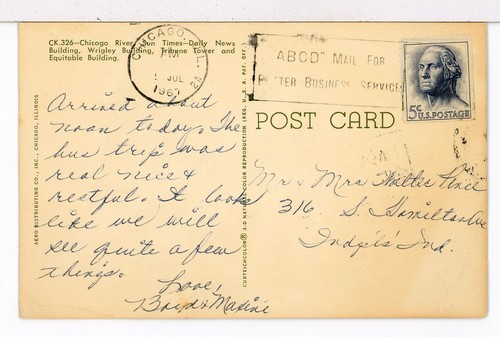 CK.326—Chicago River, Sun Times-Daily News
Building, Wrigley Building, Tribune Tower and
Equitable Building.
CHICAGO, ILL.
PM
JUL
"ABCD" MAIL FOR
BETTER BUSINESS SERVICE
5¢ U.S. POSTAGE
POST CARD
AERO DISTRIBUTING CO., INC., CHICAGO, ILLINOIS
CURTEICHCOLOR® 3-D NATURAL COLOR REPRODUCTION (REG. U.S.A. PAT. OFF.)
Arrived about
noon today. The
bus trip was
real nice &
restful. It looks
like we will
see quite a few
things.
Love,
Boyd & Maxine
Mr & Mrs Walter
316 S. Hamilton Ave
Indp'ls Ind.